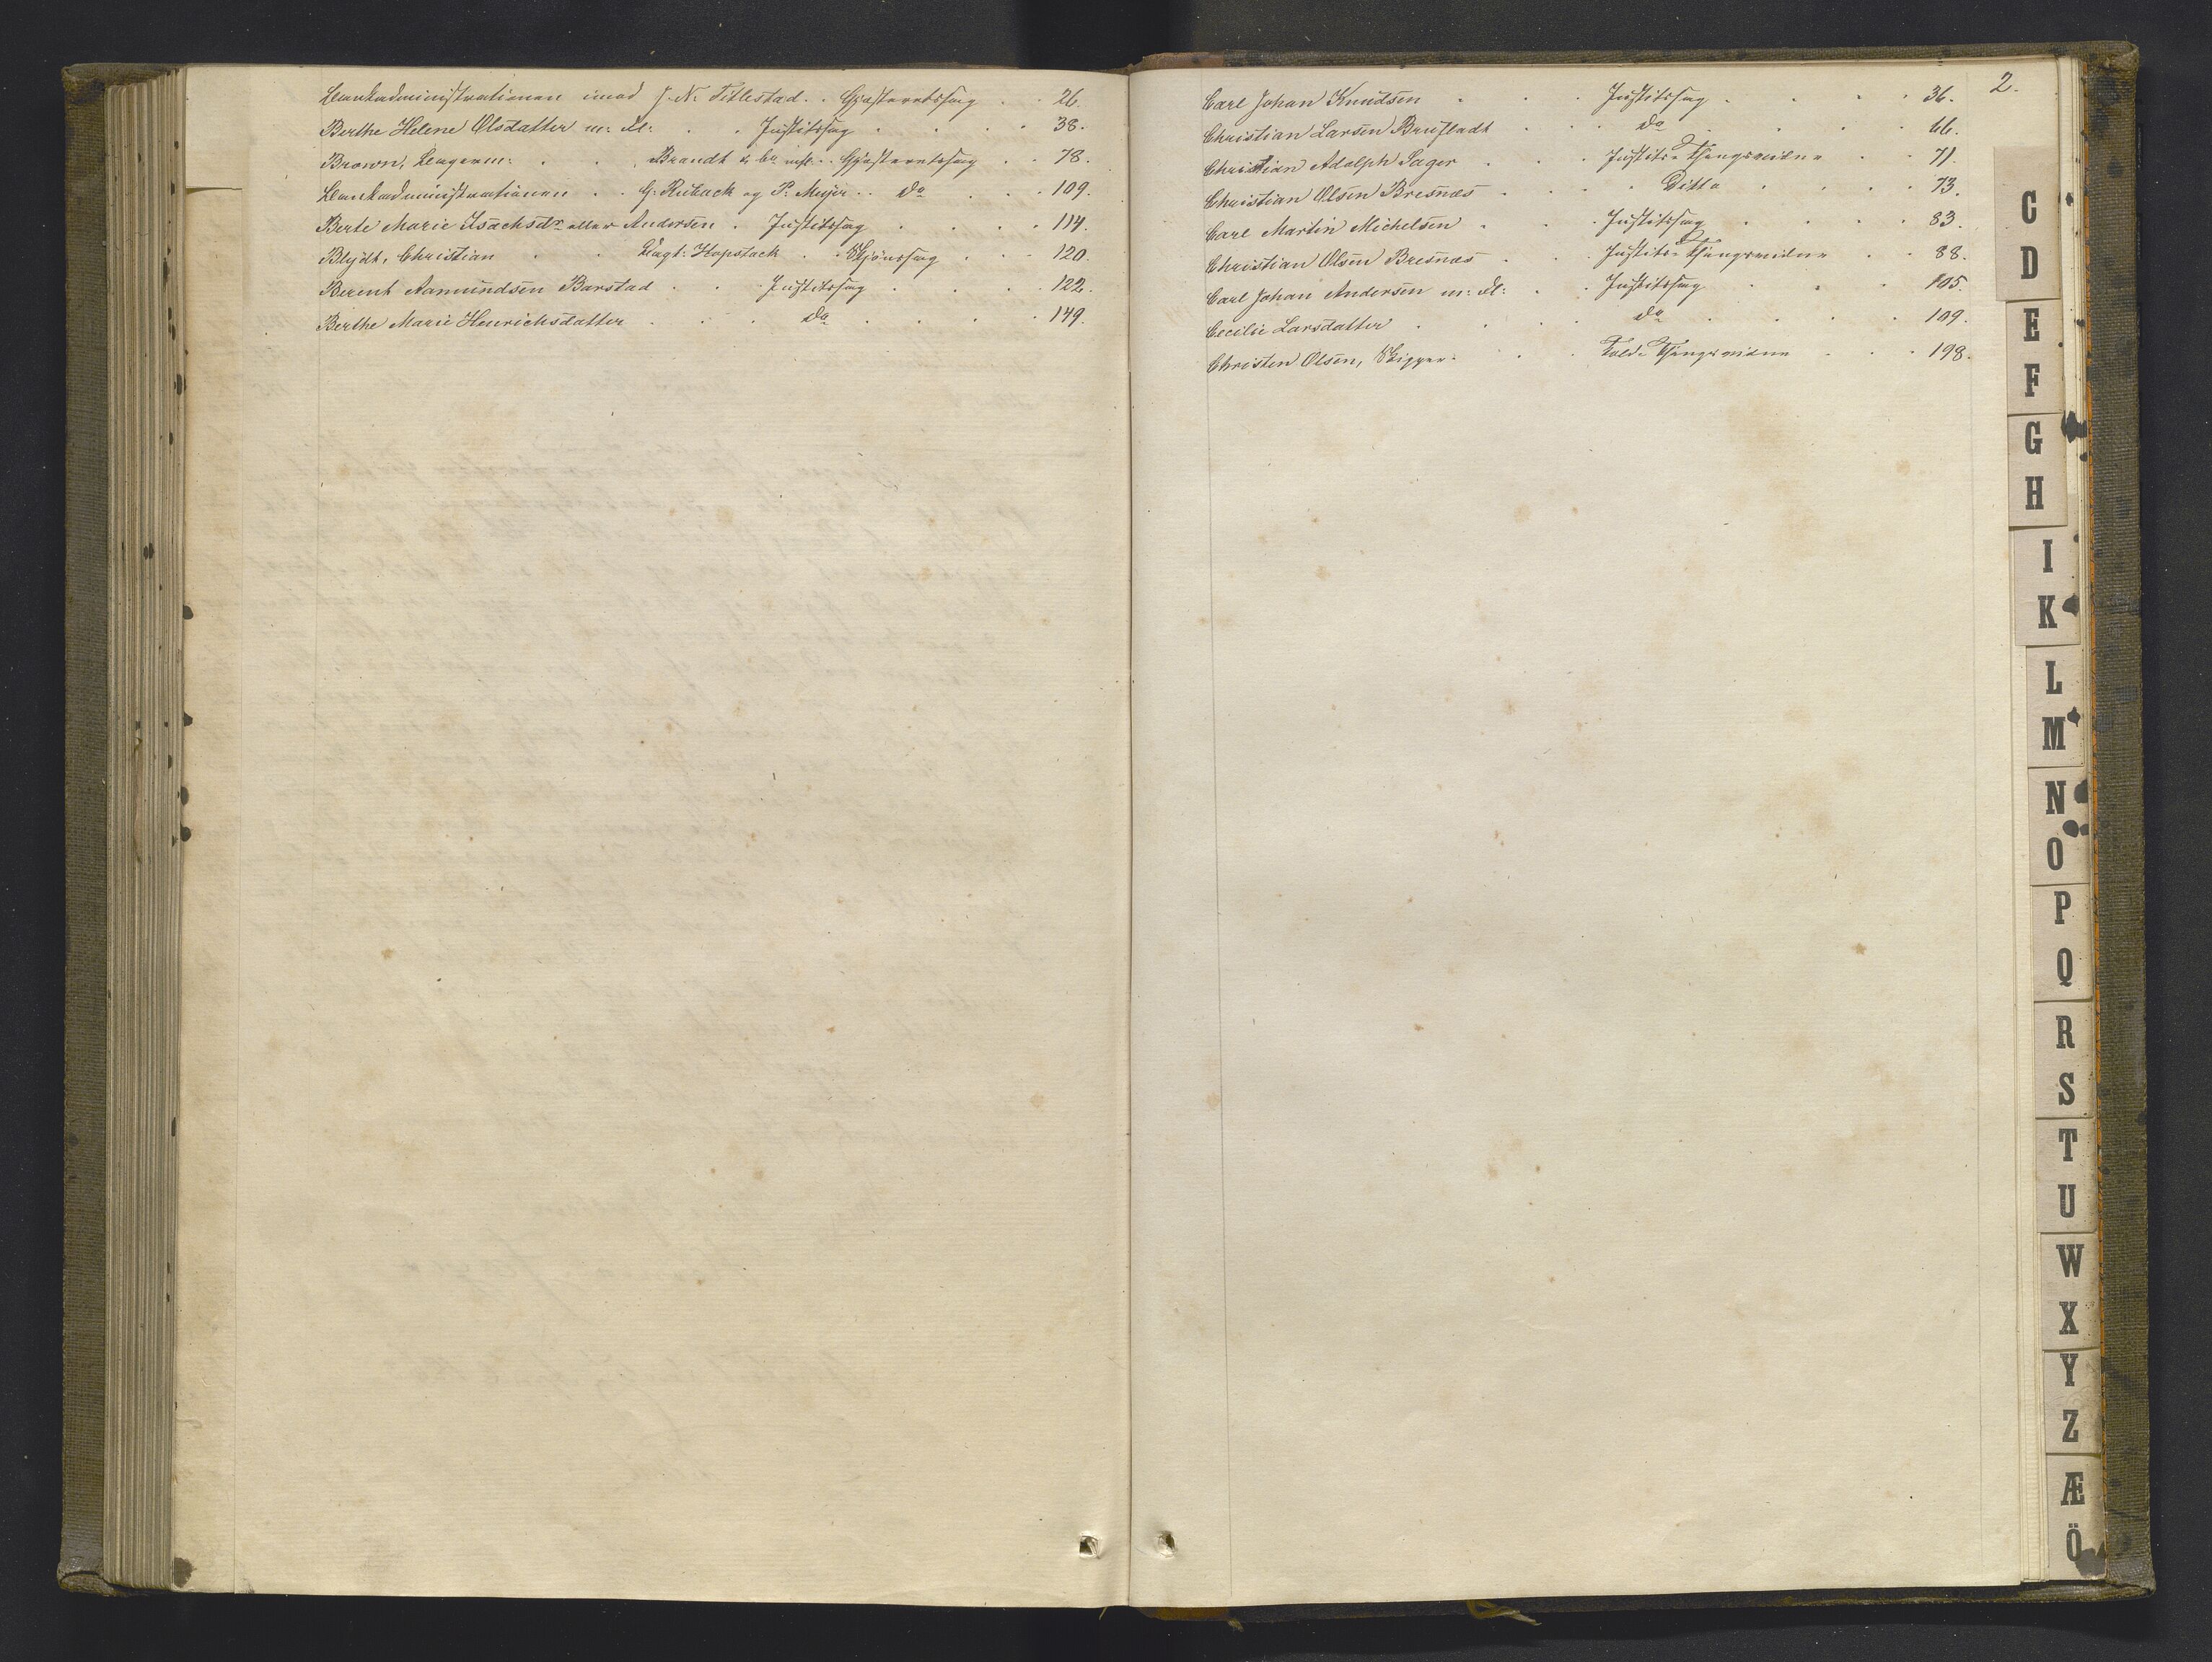 Bankadministrationen imod J. N. Titlestad. . Gjæsteretssag . . 26.
Berthe Helene Olsdatter m: Fl: . . Justitssag . . . . 38.
Brown, Kaptein: . . Brandt & Co . . Gjæsteretssag . . 78.
Bankadministrationen . . G: Ruback og P: Meyer . . Do . . . 109.
Berte Marie Isachsdr eller Andersen . Justitssag . . . . 114.
Blydt, Christian . . Vægt: Hopstock . . Skjönssag . . . 120.
Berent Aamundsen Barstad . . . Justitssag . . . . 122.
Berthe Marie Henrichsdatter . . . . Do . . . . . 149.
2.
Carl Johan Knudsen . . . Justitssag . . . . 36.
Christian Larsen Brufladt . . . Do . . . . 66.
Christian Adolph Sager . . . Justits-Thingsvidne . . 71.
Christian Olsen Bresnæs . . . . Ditto . . . . 73.
Carl Martin Michelsen . . . Justitssag . . . . 83.
Christian Olsen Bresnæs . . . Justits-Thingsvidne . . 88.
Carl Johan Andersen m: Fl: . . Justitssag . . . 105.
Cecilie Larsdatter . . . . Do . . . . . 109.
Christen Olsen, Skipper . . . Told-Thingsvidne . . . 198.
C
D
E
F
G
H
I
K
L
M
N
O
P
Q
R
S
T
U
W
X
Y
Z
Æ
Ö